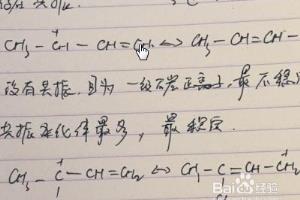 CH₃ - C⁺H - CH = CH₂ ⟷ CH₃ - CH = CH -
没有共振. 因为一级碳正离子, 最不稳
共振杂化体最多, 最稳定.
CH₃ - C⁺ - CH = CH₂ ⟷ CH₃ - C = CH - C⁺H₂
Baidu 经验